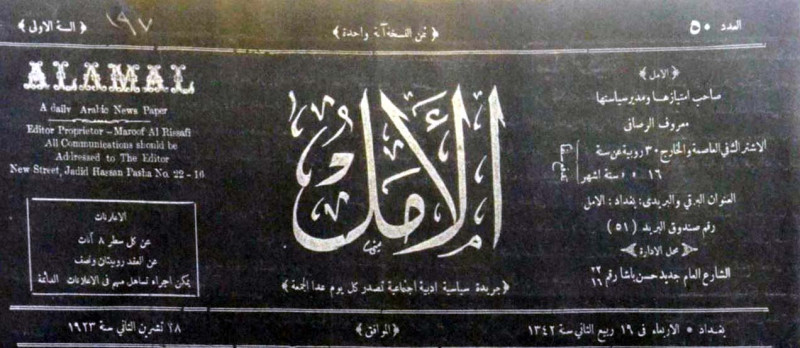 العدد ٥٠
﴿ ثمن النسخة آنة واحدة ﴾
﴿ السنة الاولى ﴾
١٩٧
﴿ الامل ﴾
صاحب امتيازها ومدير سياستها
معروف الرصافي
الاشتراك في العاصمة والخارج ٣٠ روبية عن سنة
١٦ » » ستة اشهر
العنوان البرقي والبريدي: بغداد: الامل
رقم صندوق البريد (٥١)
﴿ محل الادارة ﴾
الشارع العام جديد حسن باشا رقم ٢٢/١٦
الأمل
﴿ جريدة سياسية ادبية اجتماعية تصدر كل يوم عدا الجمعة ﴾
ALAMAL
A daily Arabic News Paper
Editor Proprietor - Maroof Al Rissafi
All Communications should be
Addressed to The Editor
New Street, Jadid Hassan Pasha No. 22 - 16
الاعلانات
عن كل سطر ٨ آنات
عن العقد روبيتان ونصف
يمكن اجراء تساهل مهم في الاعلانات الدائمة
بغداد * الاربعاء في ١٩ ربيع الثاني سنة ١٣٤٢
﴿ الموافق ﴾
٢٨ تشرين الثاني سنة ١٩٢٣